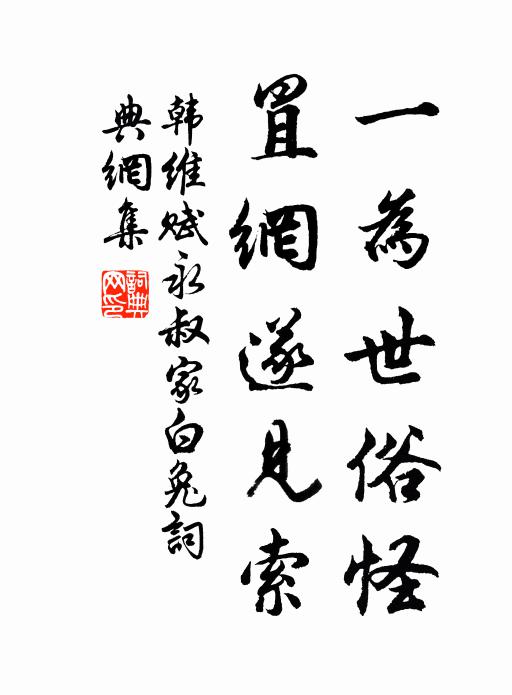 一為世俗怪
罝網遂見索
韩維賦永叔家白兔詞
典網集
詞典网印